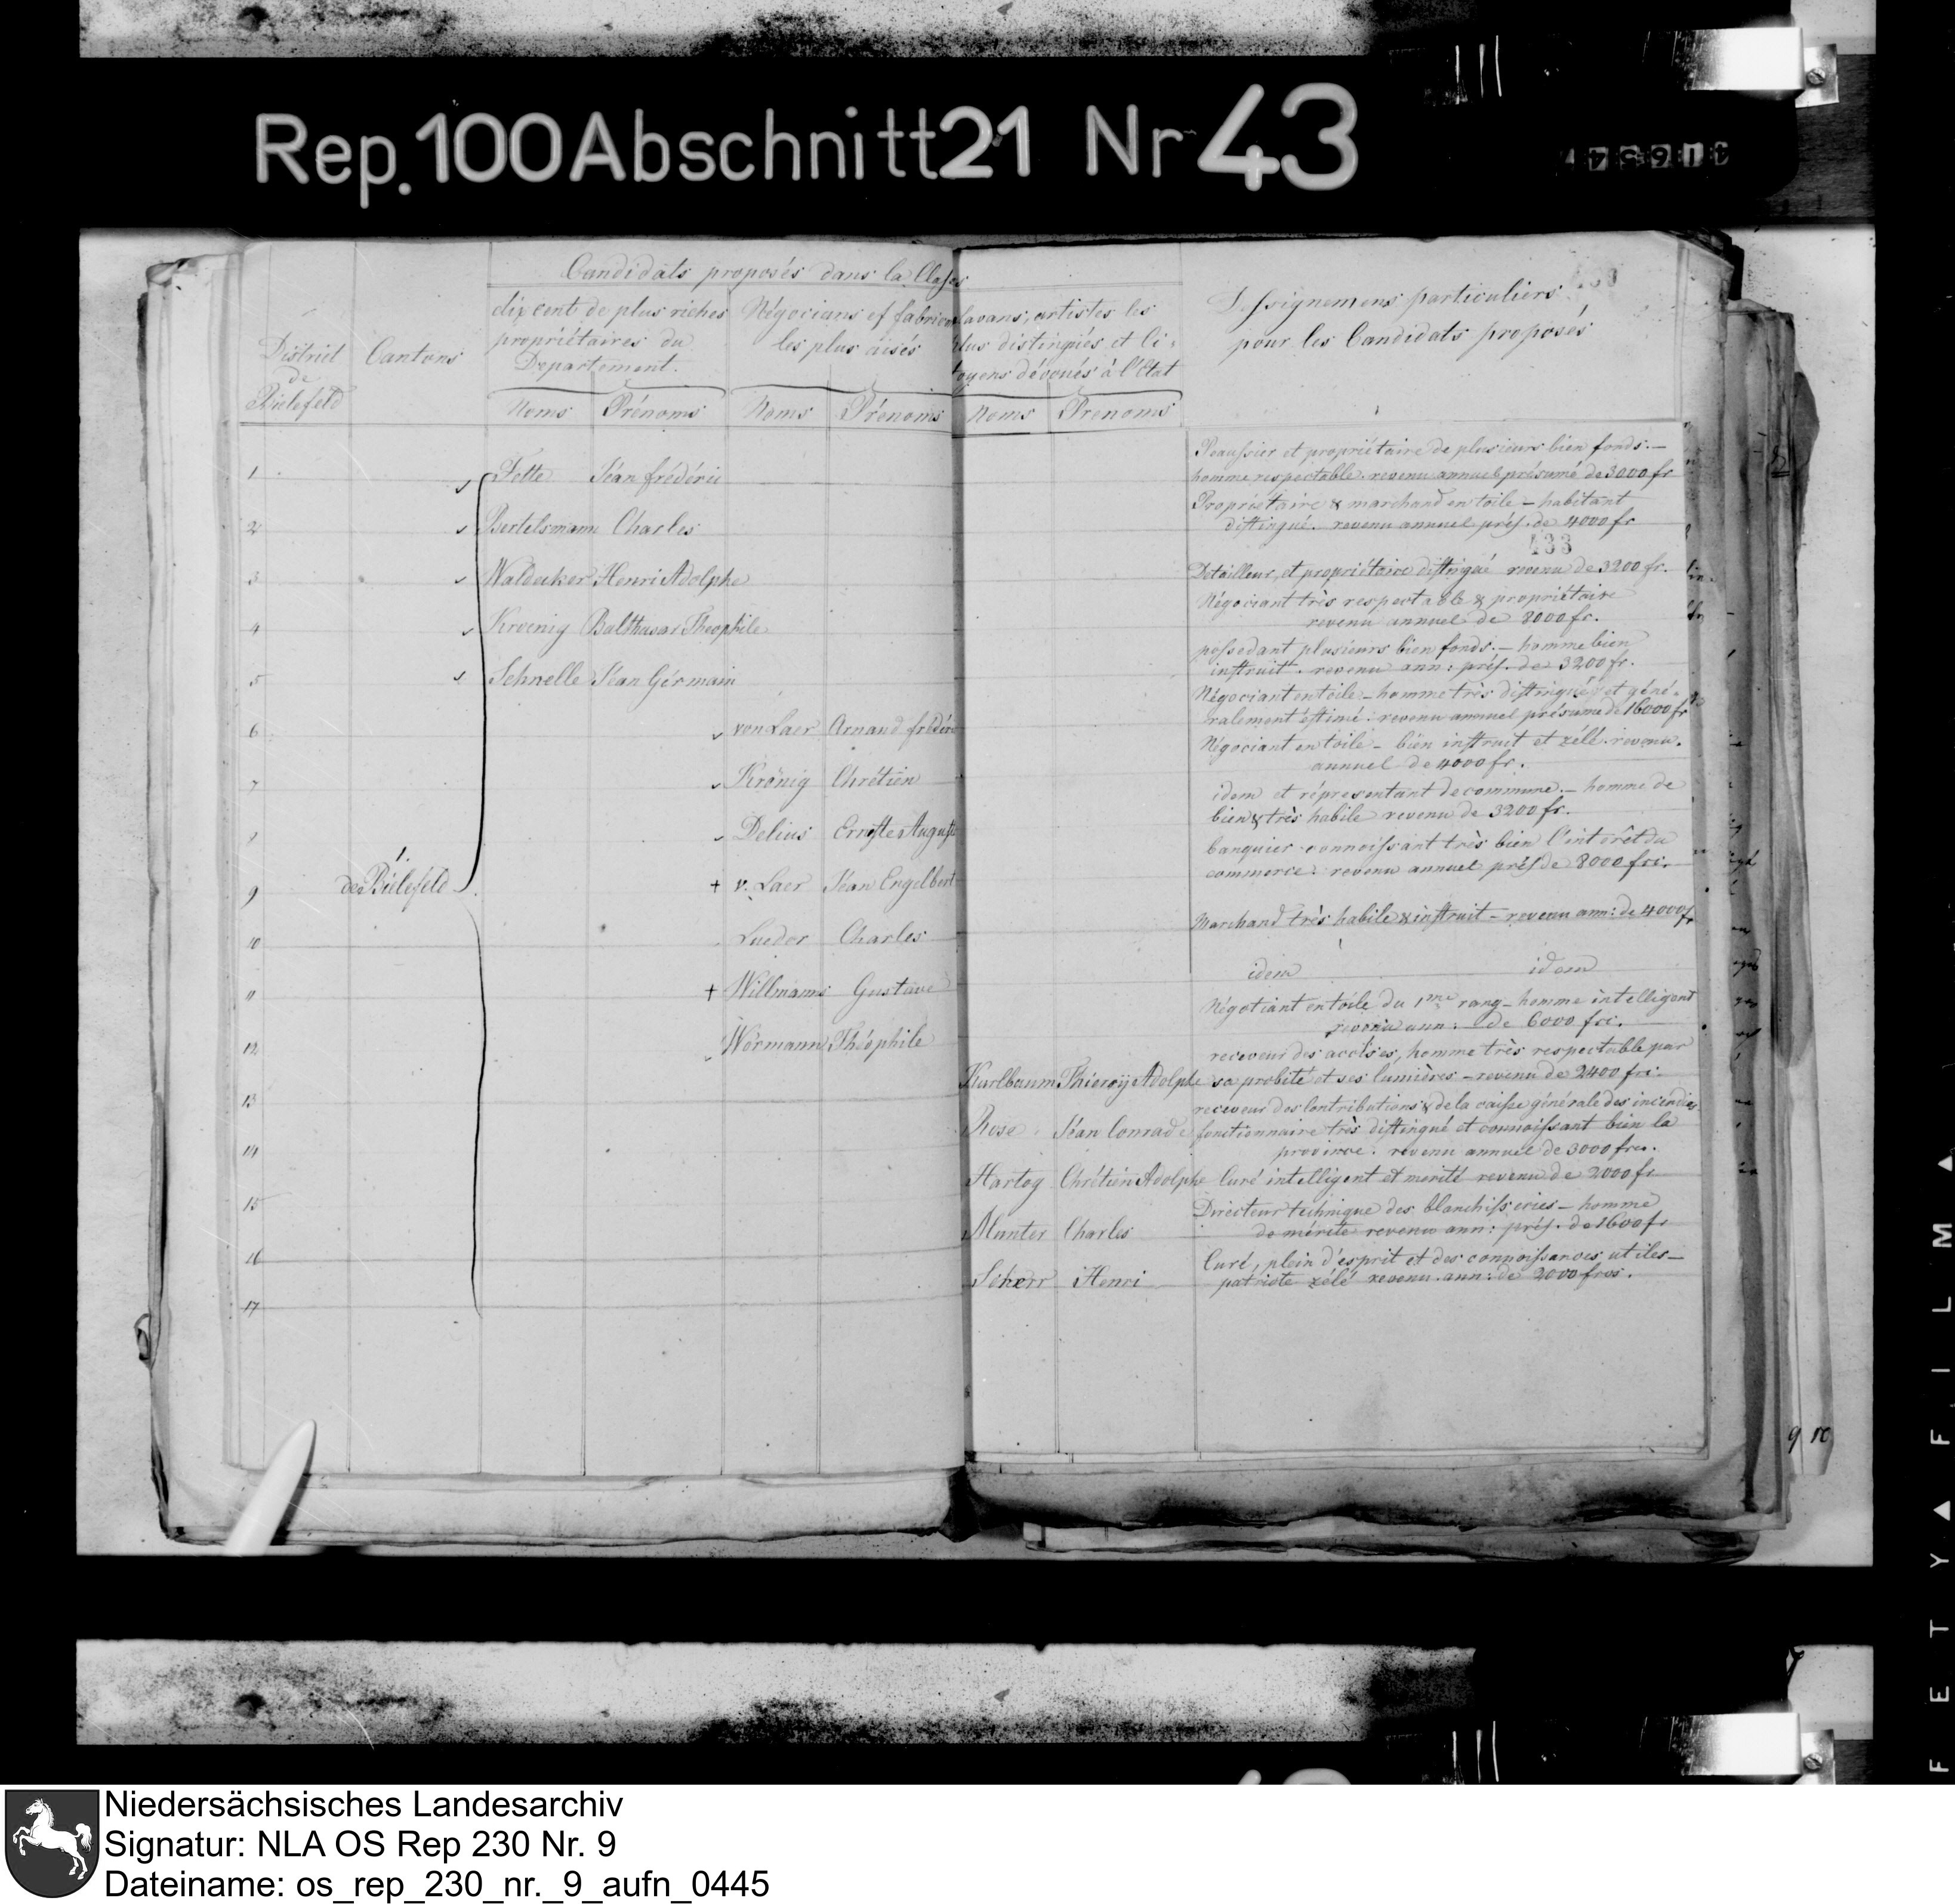 Rep. 100 Abschnitt 21 Nr 43
Candidats proposés dans la Classe
District de Bielefeld
Cantons
dix cent de plus riches propriétaires du Departement.
Négocians et fabricans les plus aisés
savans, artistes les plus distingués et citoyens dévoués à l'Etat
pour les Candidats proposés
Noms Prénoms Noms Prénoms Noms Prenoms
433
1. de Bielefeld
1 Fette Jéan frédéric
Peaussier et propriétaire de plusieurs bien fonds. —
homme respectable. revenu annuel présumé de 3000 fr
2 Bertelsmann Charles
Propriétaire & marchand en toile — habitant
distingué. revenu annuel prés. de 4000 fr
3 Waldecker Henri Adolphe
Detailleur, et propriétaire distingué revenu de 3200 fr.
4 Kroenig Balthasar Theophile
Négociant très respectable & propriétaire
revenu annuel de 8000 fr.
5 Schnelle Jéan Gérmain
possedant plusieurs bien fonds. — homme bien
instruit. revenu ann: prés. de 3200 fr.
6 von Laer Arnaud frédéric
Négociant en toile — homme très distingué et géné-
ralement éstimé. revenu annuel présumé de 16000 fr
7 Krönig Chrétien
Négociant en toile — bien instruit et zélé. revenu.
annuel de 4000 fr.
8 Delius Ernste Auguste
idem et répresentant de commune. — homme de
bien & très habile revenu de 3200 fr.
9 v. Laer Jéan Engelbert
banquier connoissant très bien l'intorêt du
commerce. revenu annuel prés de 8000 frc.
10 Lueder Charles
Marchand très habile & instruit — revenu ann: de 4000 fr
11 Willmanns Gustave
idem idem
12 Wörmann Théophile
Négotiant en toile du 1me rang — homme intelligent
revenu ann: de 6000 frc.
13 Kurlbaum Thierry Adolphe
receveur des accises, homme très respectable par
sa probité et ses lumières — revenu de 2400 frc.
14 Rose Jéan Conrade
receveur des Contributions & de la caisse générale des incendies
fonctionnaire très distingué et connoissant bien la
province. revenu annuel de 3000 frcs.
15 Hartog Chrétien Adolphe
Curé intelligent et merité revenu de 2000 fr
16 Munter Charles
Directeur technique des blanchisseries — homme
de mérite revenu ann: prés. de 1600 fr
17 Scherr Henri
Curé, plein d'esprit et des connoissances utiles —
patriote zélé revenu ann: de 2000 frcs.
9
FETY▲FILM▲
Niedersächsisches Landesarchiv
Signatur: NLA OS Rep 230 Nr. 9
Dateiname: os_rep_230_nr._9_aufn_0445